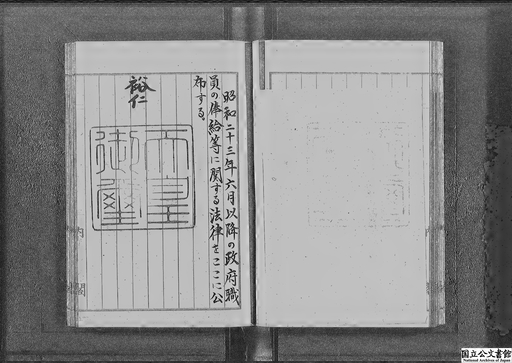 昭和二十三年六月以降の政府職
員の俸給等に関する法律をここに公
布する。
裕仁
天皇
御璽
内閣
国立公文書館
National Archives of Japan